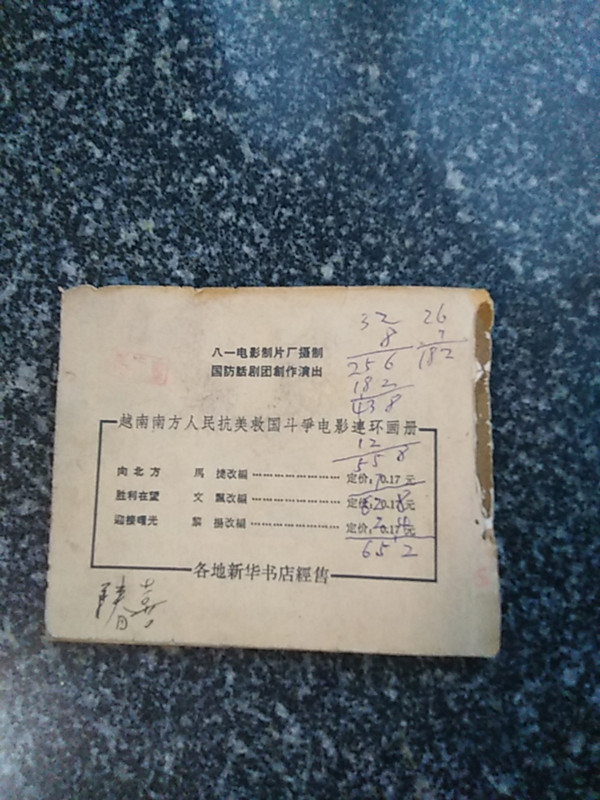 八一电影制片厂摄制
国防話剧团創作演出
越南南方人民抗美救国斗爭电影連环画册
向北方 馬 捷改編 定价,0.17元
胜利在望 文 飘改編 定价,0.18元
迎接曙光 黎 揚改編 定价,0.17元
各地新华书店經售
32
8
256
182
438
12
558
652
26
7
182